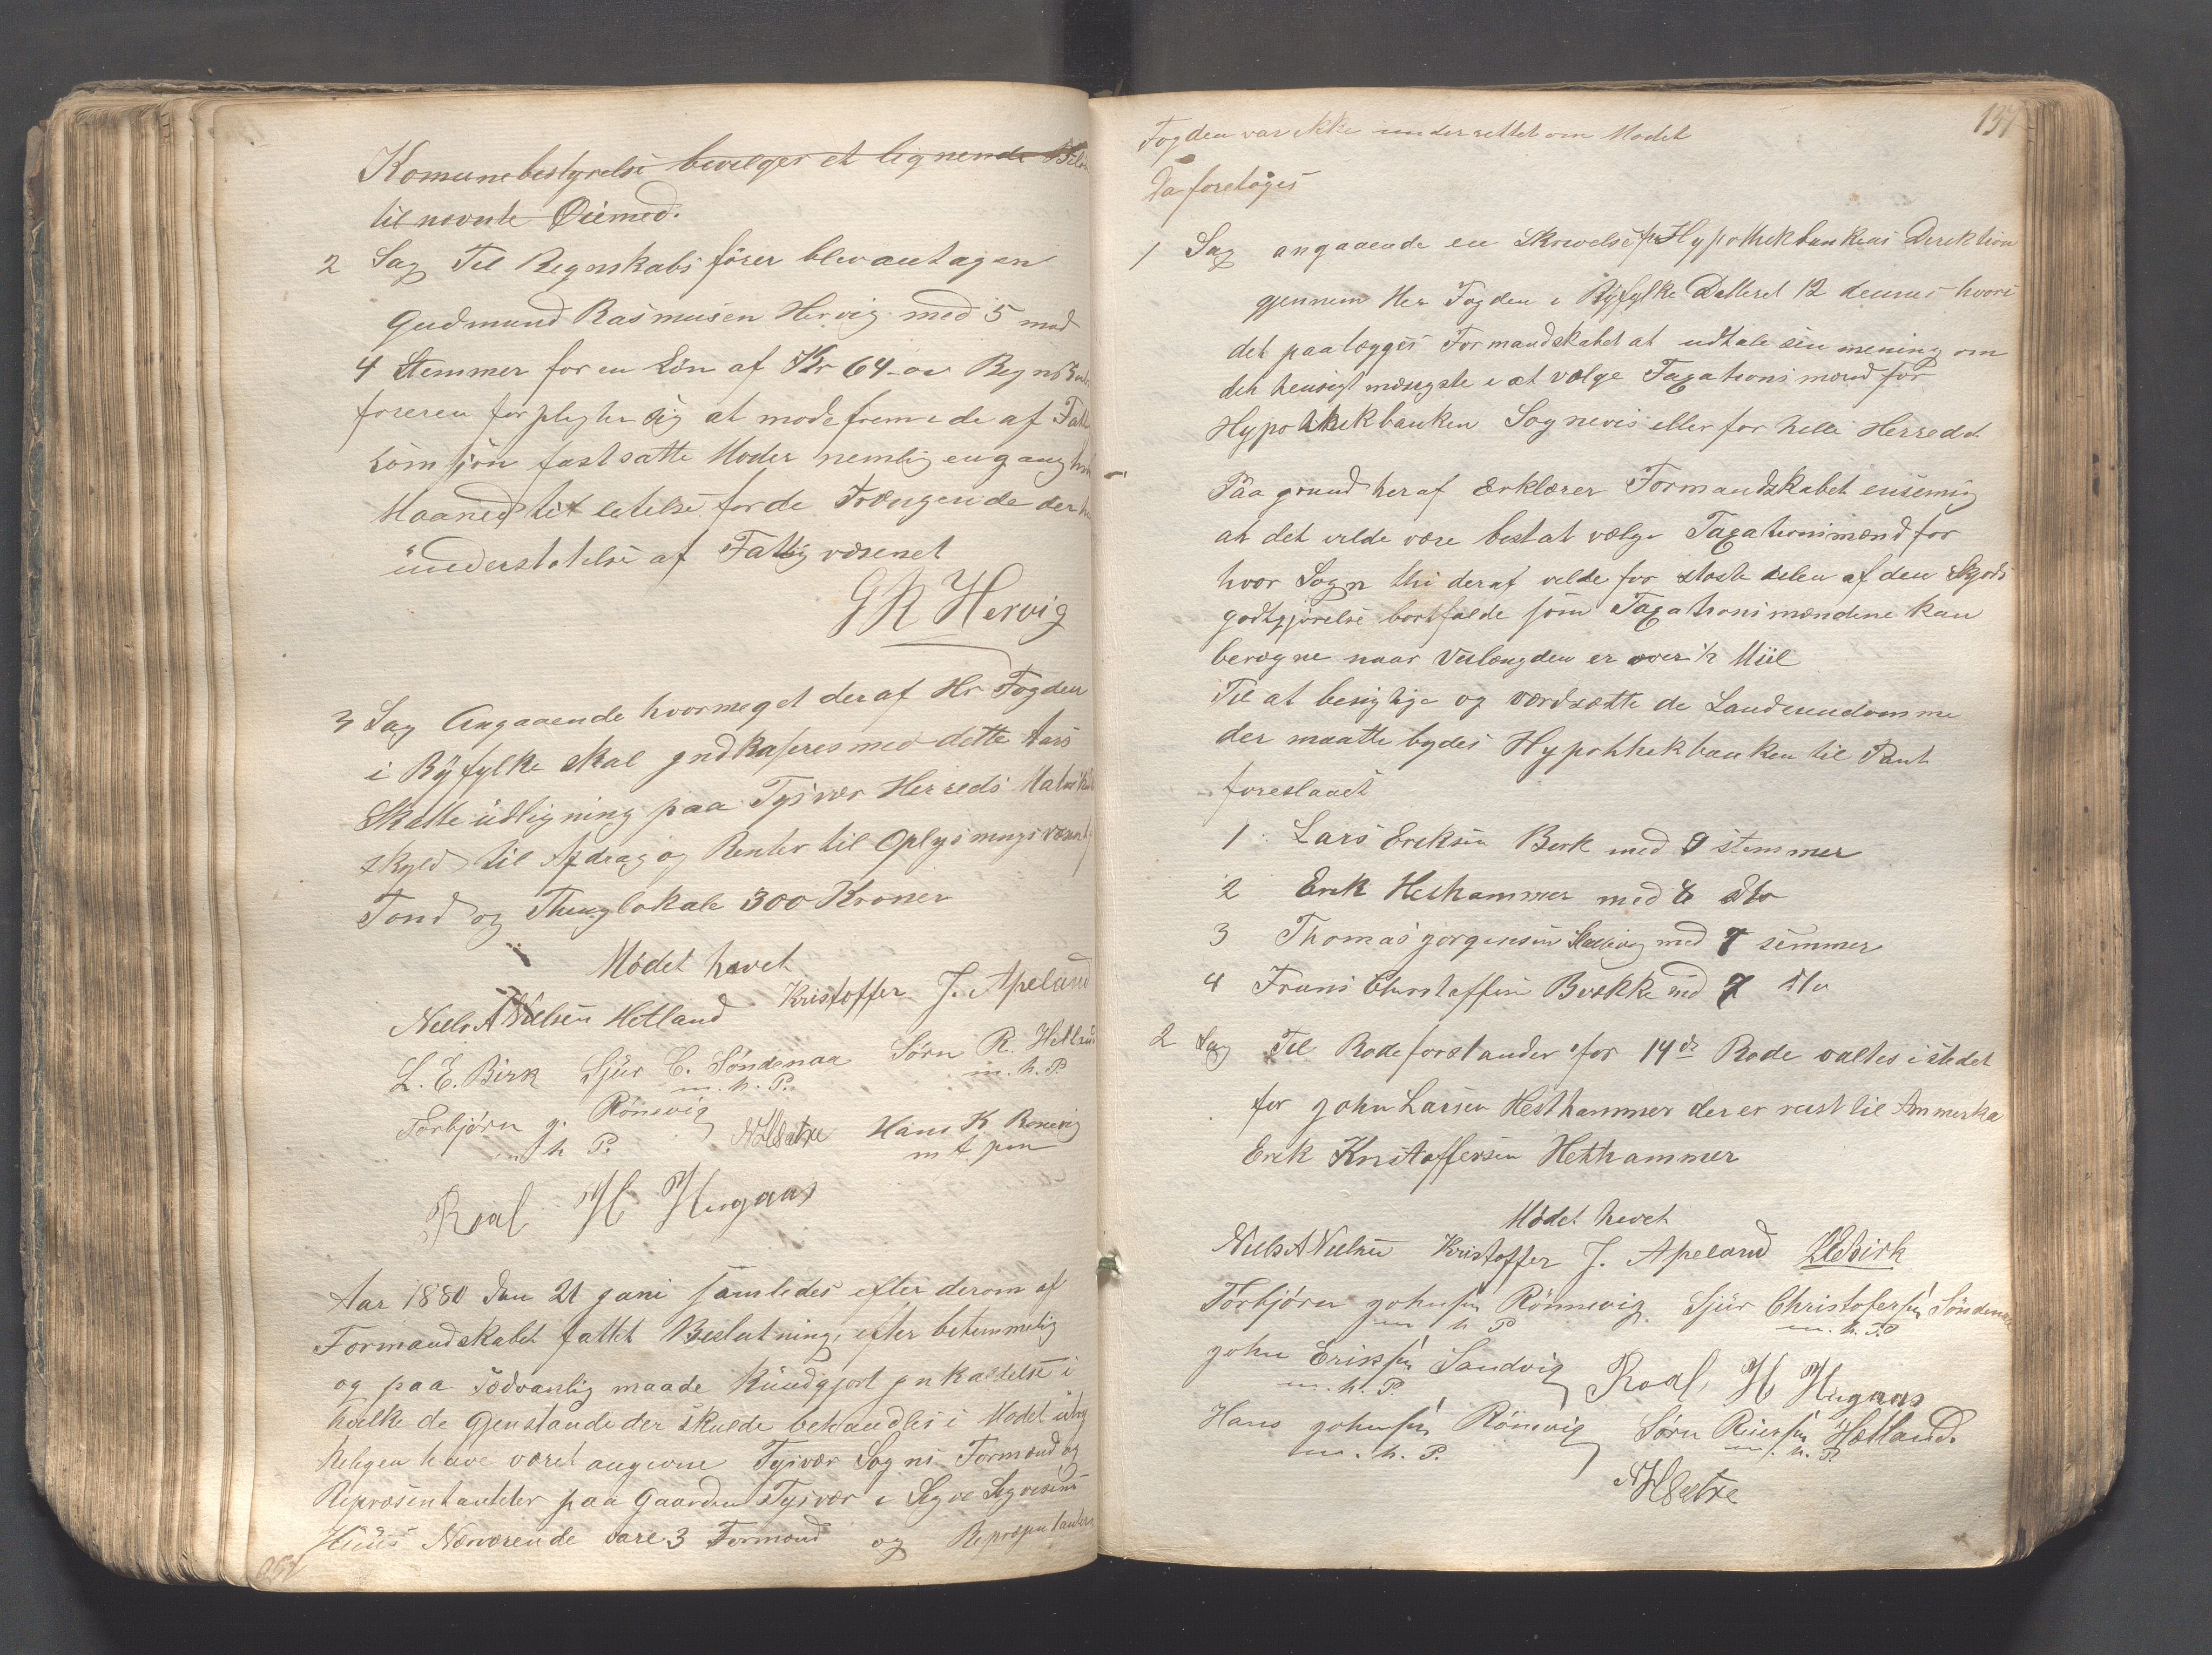 Komunebestyrelse bevelger et lignende
til nævnte Øiemed.
2 Sag Til Regnskabsfører blev antagen
Gudmund Rasmusen Hervig med 5 mod
4 Stemmer for en Løn af Kr 64 
føreren forpligter sig at møde frem i de af
komsjon fastsatte Møder nemlig engang
Maaned til letelse for de Trængende der
understøtelse af Fattigvæsenet
G R Hervig
3 Sag Angaaende hvormeget der af Hr Fogden
i Ryfylke skal indkaseres med dette Aars
Skatte udligning paa Tysvær Herreds
skyld til Afdrag og Renter til Oplysningsvæsenets
Fond og Thinglokale 300 Kroner
Mødet hævet
Niels A Nielsen Hetland Kristoffer J. Apeland
L. E. Birk Sjur C. Søndenaa Sørn R. Hetland
m. h. P. m. h. P.
Torbjørn J. Rönevig N H Sætre Hans K. Rönevig
m h P. m t pen
Roal H Hugaas
Aar 1880 den 21 Juni samledes efter derom af
Formandskabet fattet Beslutning, efter betimmelig
og paa sædvanlig maade kundgjort Jnkaldelse i
hvilke de Gjenstande der skulde behandles i Mødet
heligen have været angivne Tysvær Sogns Formænd og
Repræsentantter paa Gaarden Tysvær i
Huus Nærværende vare 3 Formænd og Repræsentanter
137
Fogden var ikke underrettet om Mødet
Da foretoges
1 Sag angaaende en Skrivelse fr Hypothekbankens Direktion
gjennem Her Fogden i Ryfylke Datteret 12 dennes hvori
det paalægges Formandskabet at udtale sin mening om
det hensigtmæsigste i at vælge Taxationsmænd for
Hypothekbanken Sognevis eller for hele Herredet
Paa grund heraf Erklærer Formandskabet ensemig
at det vilde være best at vælge Taxationsmænd for
hvor Sogn thi deraf vilde for støste delen af den Skyds
godtgjørelse bortfalde som Taxationsmændene kan
beregne naar Veilængden er over ½ Miil
Til at besigtige og værdsætte de Landeiendomme
der maatte bydes Hypothekbanken til Pant
foreslaaes
1 Lars Eriksen Birk med 9 stemmer
2 Erik Hesthammer med 8 dto
3 Thomas Jørgensen med 7 stimmer
4 Frans Christoffsen Bække med 7 dto
2 Sag Til Rodeforstander for 14de Rode valtes istedet
for John Larsen Hesthammer der er reist til Ammerka
Erik Kristoffersen Hesthammer
Mødet hevet
Niels A Nielsen Kristoffer J. Apeland LEBirk
Torbjørn Johnsen Rönnevig Sjur Christofersen Söndenaa
m h P m. h. P
John Eriksen Sandvig Roal H Hugaas
m. h. P.
Hans Johnsen Rönevig Sørn Reiersen Hetland.
m. h. P. m. h. P
N H Sætre